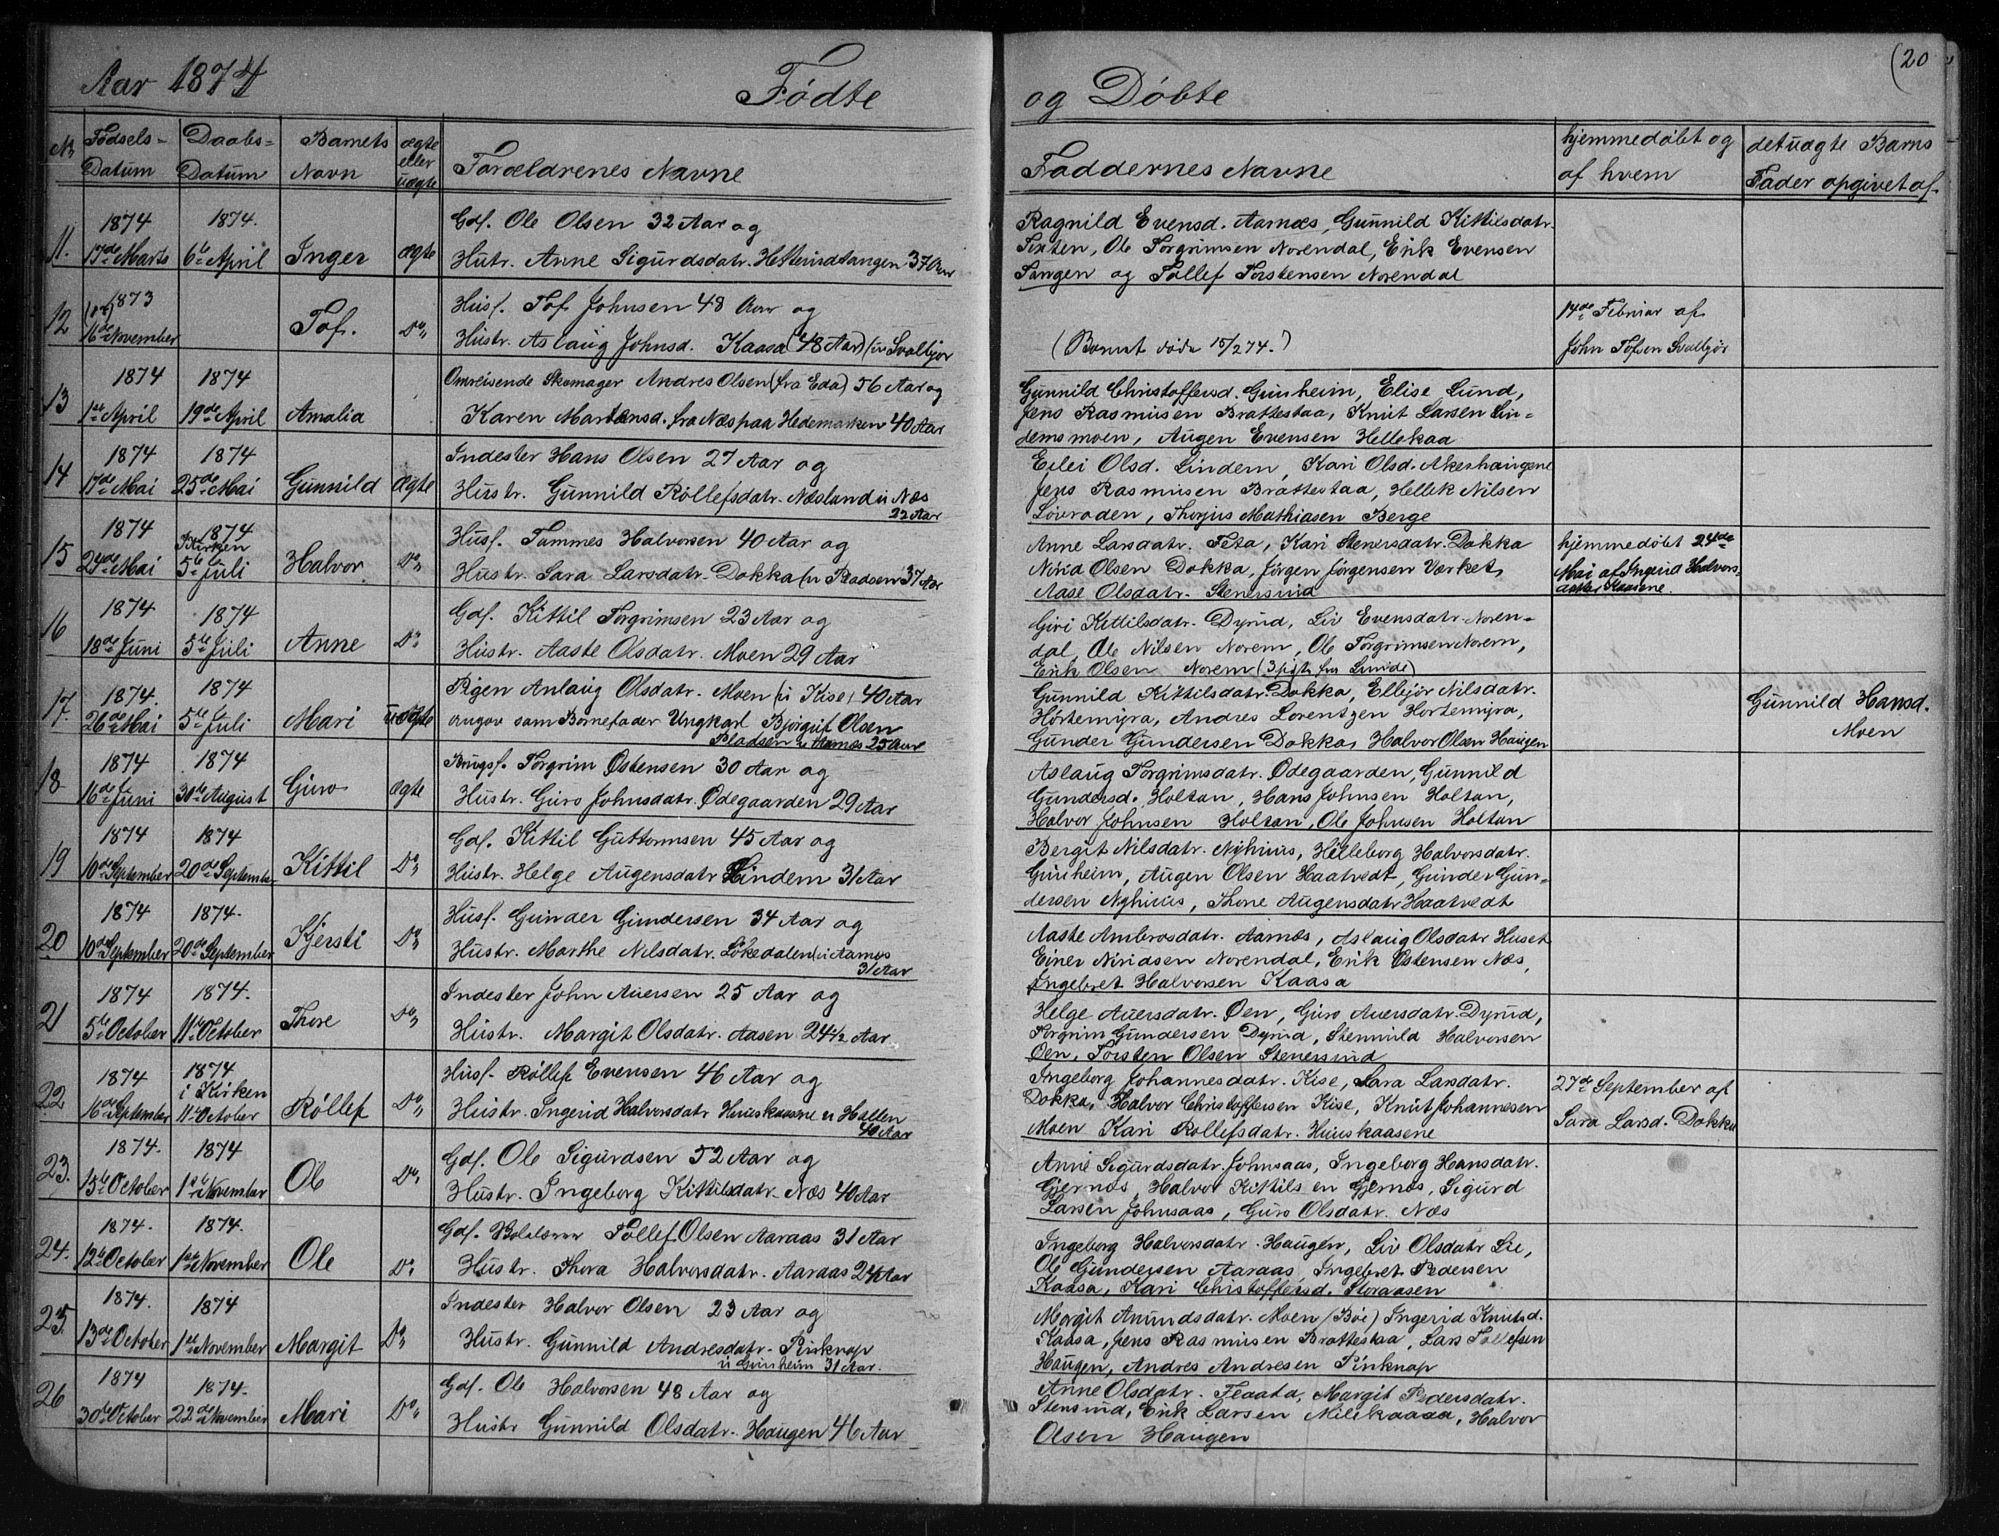 Aar 1874 Fødte og Døbte (20
N. Fødsels-Datum Daabs-Datum Barnets Navn ægte eller uægte Forældrenes Navne Faddernes Navne hjemmedøbt og af hvem det uægte Barns Fader opgivet af
11. 1874 17de Marts 1874. 6te April Inger ægte
Gdf. Ole Olsen 32 Aar og
Hustr. Anne Sigurdsdatr. 37 Aar
Ragnild Evensd. Aarnæs, Gunnild Kittilsdatr.
Ole Torgrimsen Norendal, Erik Evensen
Tangen og Tollef Torstensen Norendal
12 1873 16de November Tof. Do,,
Husf. Tof Johnsen 48 Aar og
Hustr. Aslaug Johnsd. Kaasa (48 Aar) (u Svalbjør
(Barnet døde 15/2 74.)
14de Februar af
John Tofsen Svalbjør
13 1874 1ste April 1874 19de April Amalia
Omreisende Skomager Andres Olsen (fra Eda) 56 Aar og
Karen Martensd. fra Næs paa Hedemarken 40 Aar
Gunnild Christoffersd. Gunheim, Elise Lund,
Jens Rasmusen Brattestaa, Knut Larsen Lin-
demsmoen, Augen Evensen Hellekaa
14 1874 17de Mai 1874 25de Mai Gunnild ægte
Inderster Hans Olsen 27 Aar og
Hustr. Gunnild Røllefsdatr. Næsland u Næs
22 Aar
Eilei Olsd. Lindem, Kari Olsd. Akerhaugene
Jens Rasmusen Brattestaa, Hellek Nilsen
Løvraden, Thorjus Mathiasen Berge
15 1874 24de Mai 1874 Kirken 5te Juli Halvor Do
Husf. Tommes Halvorsen 40 Aar og
Hustr. Sara Larsdatr. Dokka (u Bradsen 37 Aar
Anne Larsdatr. Teta, Kari Stenersdatr. Dokka
Nirid Olsen Dokka, Jørgen Jørgensen Værket,
Aase Olsdatr. Stenersund
hjemmedøbt 24de
Mai af Ingrid Halvors-
datter Kaasene.
16 1874 18de Juni 1874 5te Juli Anne Do
Gdf. Kittil Torgrimsen 23 Aar og
Hustr. Aaste Olsdatr. Moen 29 Aar
Giri Kittilsdatr. Dyrud, Liv Evensdatr. Noren-
dal, Ole Nilsen Norem, Ole Torgrimsen Norem,
Erik Olsen Norem
17. 1874. 26de Mai 1874 5te Juli Mari uægte
Pigen Anlaug Olsdatr. Moen (u Kise) 40 Aar
angav som Barnefader Ungkarl Bjørguf Olsen
Bladsen u Aarnæs 25 Aar
Gunnild Kittilsdatr. Dokka, Ellbjør Nilsdatr.
Hørtemyra, Andres Lorentzen Hørtemyra,
Gunder Gundersen Dokka, Halvor Olsen Haugen
Gunnild Hansd.
Moen
18 1874 16de Juni 1874 30te August Guro ægte
Brugsf. Torgrim Østensen 30 Aar og
Hustr. Guro Johnsdatr. Ødegaarden 29 Aar
Aslaug Torgrimsdatr. Ødegaarden, Gunnild
Gundersd. Holtan, Hans Johnsen Holtan,
Halvor Johnsen Holtan, Ole Johnsen Holtan
19 1874 10de September 1874 20de September Kittil Do
Gdf. Kittil Guttormsen 45 Aar og
Hustr. Helge Augensdatr Lindem 31 Aar
Bergit Nilsdatr. Nyhuus, Hilleborg Halvorsdatr.
Gunheim, Augen Olsen Haatvedt, Gunder Gun-
dersen Nyhuus, Thone Augensdatr Haatvedt
20 1874 10de September 1874. 20de September Kjersti Do
Husf. Gunder Gundersen 34 Aar og
Hustr. Marthe Nilsdatr. Løkedalen (u Aarnæs
31 Aar
Aaste Ambrosdatr. Aarnæs, Aslaug Olsdatr Huset
Einer Niridsen Norendal, Erik Østensen Næs,
Ingebret Halvorsen Kaasa
21 1874 5te October 1874. 11te October Thore Do
Inderster John Auersen 25 Aar og
Hustr. Margit Olsdatr. Aasen 24½ Aar
Helge Auersdatr. Øen, Guro Auersdatr. Dyrud,
Torgrim Gundersen Dyrud, Stennild Halvorsen
Øen, Torsten Olsen Stenersund
22 1874 16de September 1874 i Kirken 11te October Røllef Do,,
Husf. Røllef Evensen 46 Aar og
Hustr. Ingerid Halvorsdatr Huuskaasene u Hallen
40 Aar
Ingeborg Johannesdatr. Kise, Sara Larsdatr.
Dokka, Halvor Christoffersen Kise, Knut Johannesen
Moen Kari Røllefsdatr. Huuskaasene
27de September af
Sara Larsd. Dokka
23. 1874. 15te October 1874 1ste November Ole Do
Gdf. Ole Sigurdsen 52 Aar og
Hustr. Ingeborg Kittilsdatr. Næs 40 Aar
Anne Sigurdsdatr. Johnsaas, Ingeborg Hansdatr.
Gjernes, Halvor Kittilsen Gjernes, Sigurd
Larsen Johnsaas, Guro Olsdatr. Næs
24. 1874. 12te October 1874. 1ste November Ole Do
Gdf. Tollef Olsen Aaraas 31 Aar
Hustr. Thora Halvorsdatr. Aaraas 24 Aar
Ingeborg Halvorsdatr. Haugen, Liv Olsdatr Lie,
Ole Gundersen Aaraas, Ingebret Pedersen
Kaasa, Kari Christoffersd. Storaasen
25. 1874. 13de October 1874 1ste November Margit Do
Inderster Halvor Olsen 23 Aar og
Hustr. Gunnild Andresdatr. Pinknap
u Gunheim 31 Aar.
Margit Amundsdatr. Moen (Bøe) Ingerid Knutsd.
Kaasa, Jens Rasmusen Brattestaa, Lars Tollefsen
Haugen, Andres Andresen Pinknap
26 1874 30te October 1874. 22de November Mari Do,,
Gdf. Ole Halvorsen 48 Aar og
Hustr Gunnild Olsdatr. Haugen 46 Aar
Anne Olsdatr. Teaata, Margit Pedersdatr.
Stensrud, Erik Larsen Milekaasa, Halvor
Olsen Haugen